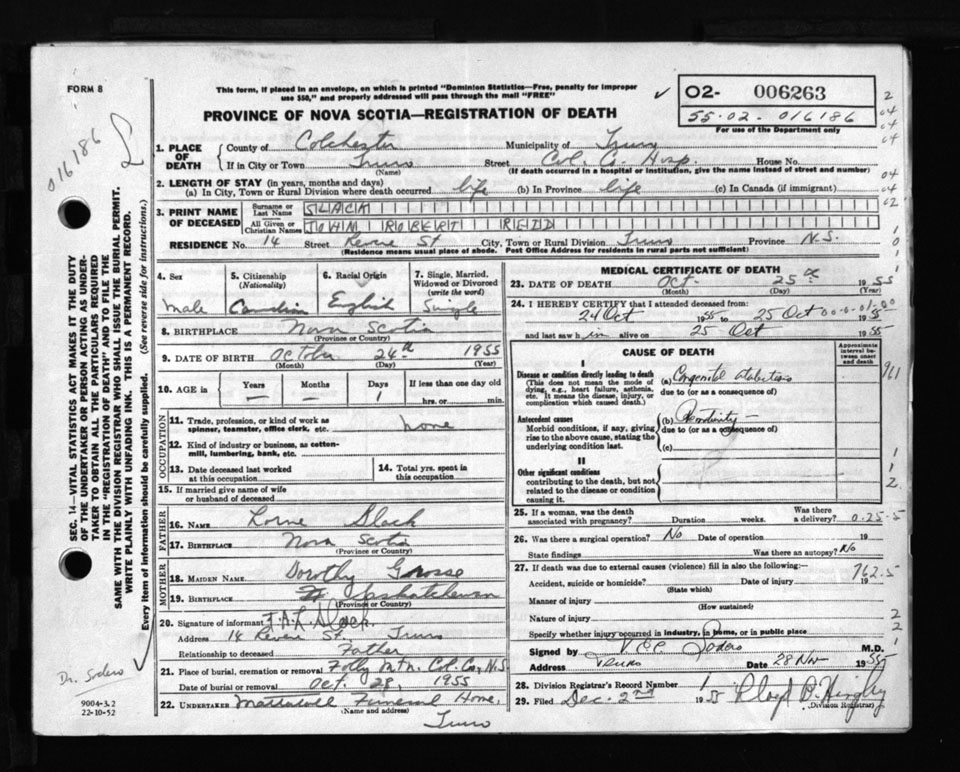 FORM 8
This form, if placed in an envelope, on which is printed "Dominion Statistics—Free, penalty for improper
use $50," and properly addressed will pass through the mail "FREE"
PROVINCE OF NOVA SCOTIA—REGISTRATION OF DEATH
02- 006263
55-02-016186
For use of the Department only
016186
1. PLACE OF DEATH
County of Colchester Municipality of Truro
If in City or Town Truro Street Col. Co. Hosp. House No.
(Name) (If death occurred in a hospital or institution, give the name instead of street and number)
2. LENGTH OF STAY (in years, months and days)
(a) In City, Town or Rural Division where death occurred life (b) In Province life (c) In Canada (if immigrant)
3. PRINT NAME OF DECEASED
Surname or Last Name SLACK
All Given or Christian Names JOHN ROBERT
RESIDENCE No. 14 Street Revere St City, Town or Rural Division Truro Province N.S.
(Residence means usual place of abode. Post Office Address for residents in rural parts not sufficient)
4. Sex 5. Citizenship (Nationality) 6. Racial Origin 7. Single, Married, Widowed or Divorced (write the word)
male Canadian English Single
8. BIRTHPLACE Nova Scotia
(Province or Country)
9. DATE OF BIRTH October 24th 1955
(Month) (Day) (Year)
10. AGE in Years Months Days If less than one day old
— — 1 hrs. or min.
OCCUPATION
11. Trade, profession, or kind of work as spinner, teamster, office clerk, etc. none
12. Kind of industry or business, as cotton-mill, lumbering, bank, etc.
13. Date deceased last worked at this occupation
14. Total yrs. spent in this occupation
15. If married give name of wife or husband of deceased
FATHER
16. NAME Lorne Slack
17. BIRTHPLACE Nova Scotia
(Province or Country)
MOTHER
18. MAIDEN NAME Dorothy
19. BIRTHPLACE Saskatchewan
(Province or Country)
20. Signature of informant Slack
Address 14 Revere St., Truro
Relationship to deceased Father
21. Place of burial, cremation or removal Folly Mtn. Col. Co., N.S.
Date of burial or removal Oct. 28, 1955
22. UNDERTAKER Funeral Home,
(Name and address)
Truro
MEDICAL CERTIFICATE OF DEATH
23. DATE OF DEATH Oct. 25th 1955
(Month) (Day) (Year)
24. I HEREBY CERTIFY that I attended deceased from:
24 Oct 1955 to 25 Oct 1955
and last saw him alive on 25 Oct 1955
CAUSE OF DEATH
Approximate interval between onset and death
I
Disease or condition directly leading to death
(This does not mean the mode of dying, e.g., heart failure, asthenia, etc. It means the disease, injury, or complication which caused death.)
(a) Congenital
due to (or as a consequence of)
Antecedent causes
Morbid conditions, if any, giving rise to the above cause, stating the underlying condition last.
(b)
due to (or as a consequence of)
(c)
II
Other significant conditions
contributing to the death, but not related to the disease or condition causing it.
25. If a woman, was the death associated with pregnancy? Duration weeks. Was there a delivery?
26. Was there a surgical operation? No Date of operation 19
State findings Was there an autopsy? No
27. If death was due to external causes (violence) fill in also the following:—
762.5
Accident, suicide or homicide? Date of injury 19
(State which)
Manner of injury
(How sustained)
Nature of injury
Specify whether injury occurred in industry, in home, or in public place
Signed by M.D.
Address Truro Date 28 Nov 1955
28. Division Registrar's Record Number 1
29. Filed Dec. 2nd 1955 Lloyd
(Division Registrar)
SEC. 14—VITAL STATISTICS ACT MAKES IT THE DUTY
OF THE UNDERTAKER OR PERSON ACTING AS UNDER-
TAKER TO OBTAIN ALL THE PARTICULARS REQUIRED
IN THE "REGISTRATION OF DEATH" AND TO FILE THE
SAME WITH THE DIVISION REGISTRAR WHO SHALL ISSUE THE BURIAL PERMIT.
WRITE PLAINLY WITH UNFADING INK. THIS IS A PERMANENT RECORD.
Every item of information should be carefully supplied. (See reverse side for instructions.)
Dr. Sodero
9004-3.2
22-10-52